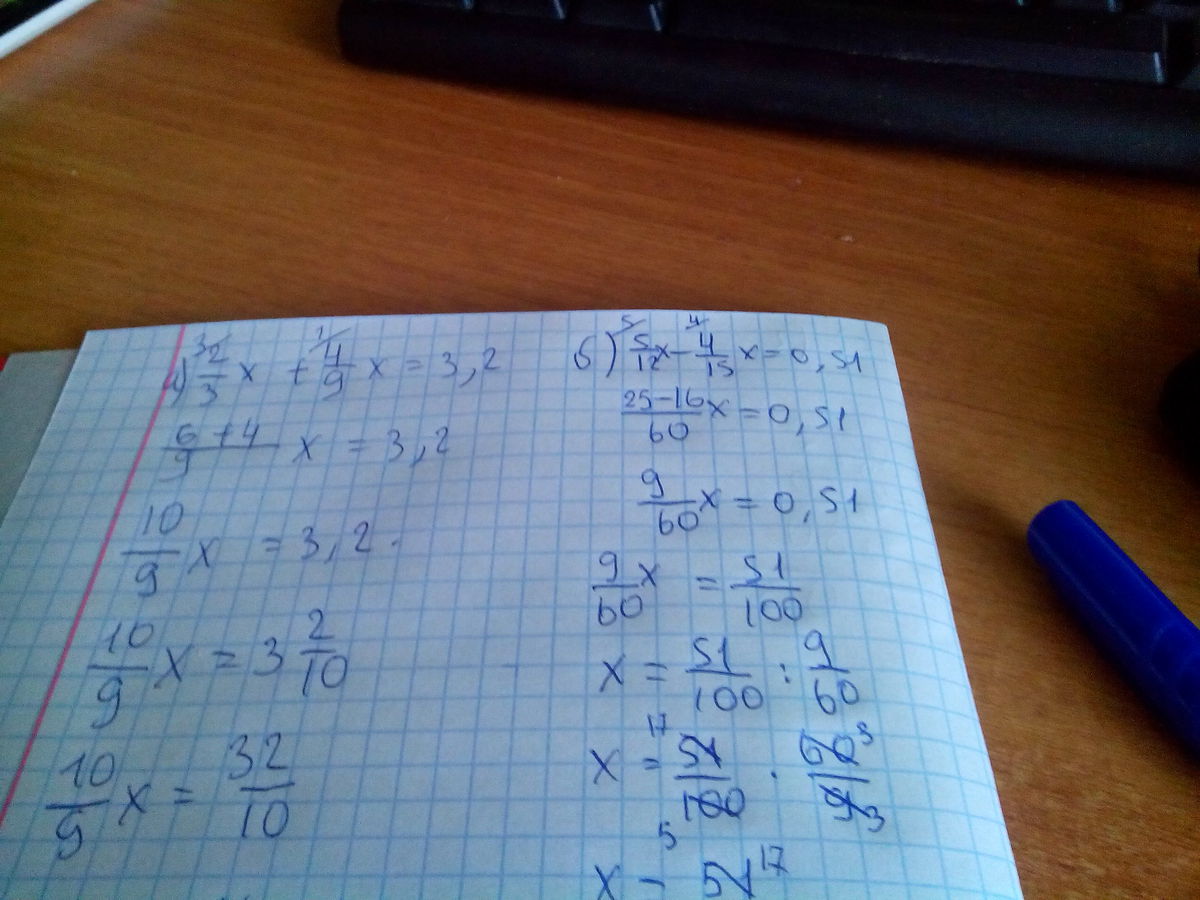 а) ³⁄2/3 x + ¹⁄4/9 x = 3,2
6+4/9 x = 3,2
10/9 x = 3,2.
10/9 x = 3 2/10
10/9 x = 32/10
б) ⁵⁄5/12 x - ⁴⁄4/15 x = 0,51
25-16/60 x = 0,51
9/60 x = 0,51
9/60 x = 51/100
x = 51/100 : 9/60
x = 17 51/100 5 · 60 3/9 3
x = 51 17